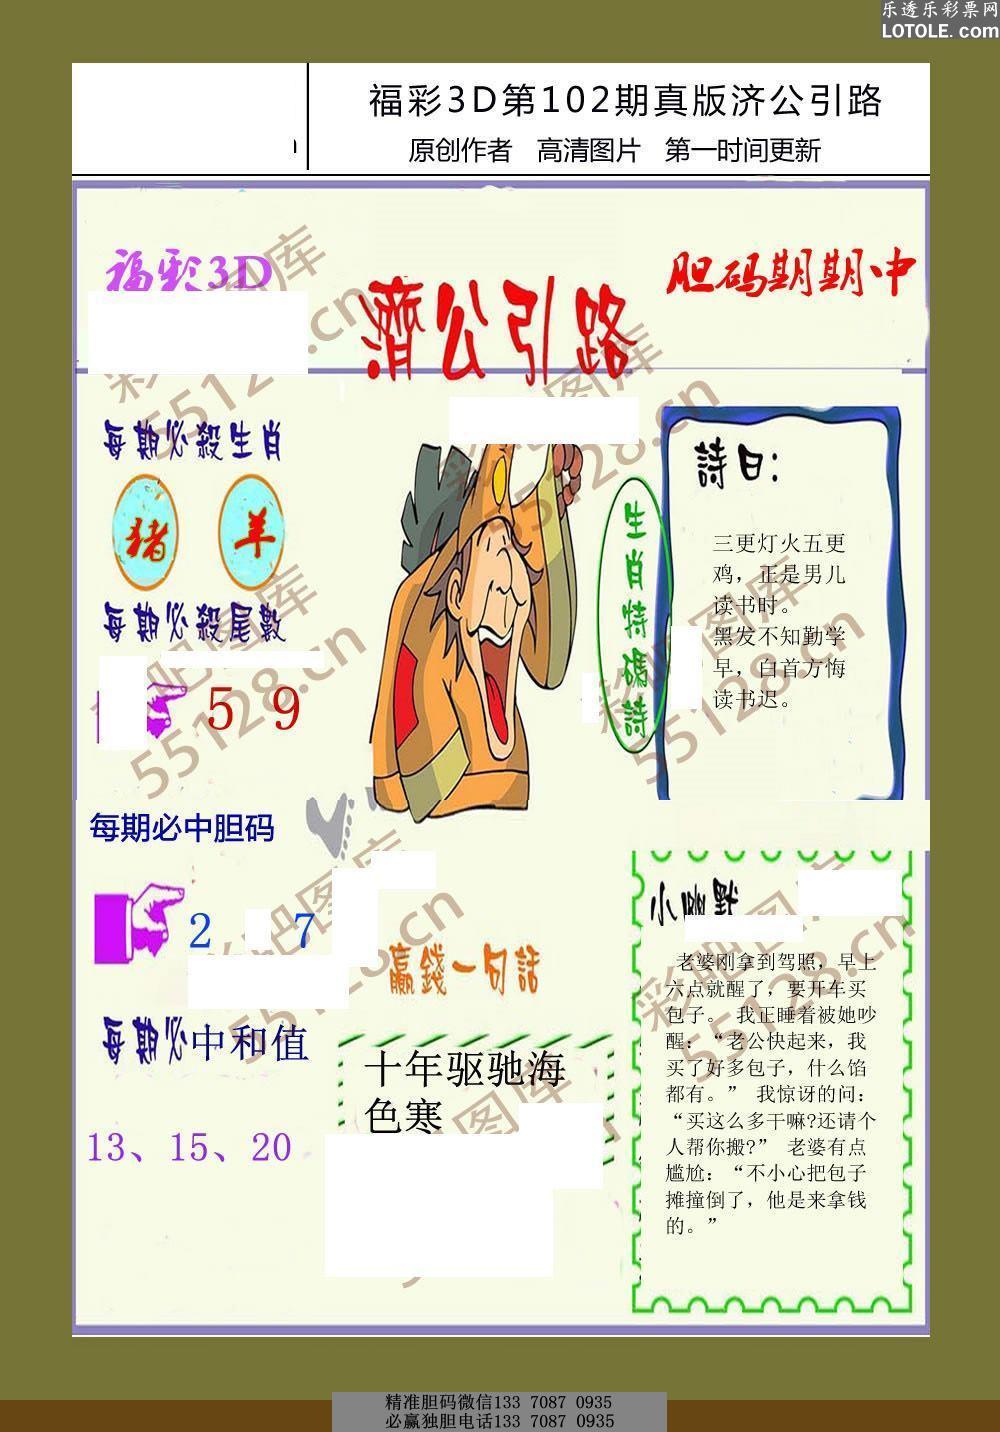 乐透乐彩票网
LOTOLE.com
福彩3D第102期真版济公引路
原创作者 高清图片 第一时间更新
福彩3D
濟公引路
胆码期期中
每期必殺生肖
猪 羊
每期必殺尾數
5 9
生肖特碼詩
詩曰：
三更灯火五更
鸡，正是男儿
读书时。
黑发不知勤学
早，白首方悔
读书迟。
每期必中胆码
2 7
每期必中和值
13、15、20
赢錢一句話
十年驱驰海
色寒
小幽默
老婆刚拿到驾照，早上
六点就醒了，要开车买
包子。 我正睡着被她吵
醒：“老公快起来，我
买了好多包子，什么馅
都有。” 我惊讶的问：
“买这么多干嘛?还请个
人帮你搬?” 老婆有点
尴尬：“不小心把包子
摊撞倒了，他是来拿钱
的。”
彩吧图库
55128.cn
精准胆码微信133 7087 0935
必赢独胆电话133 7087 0935